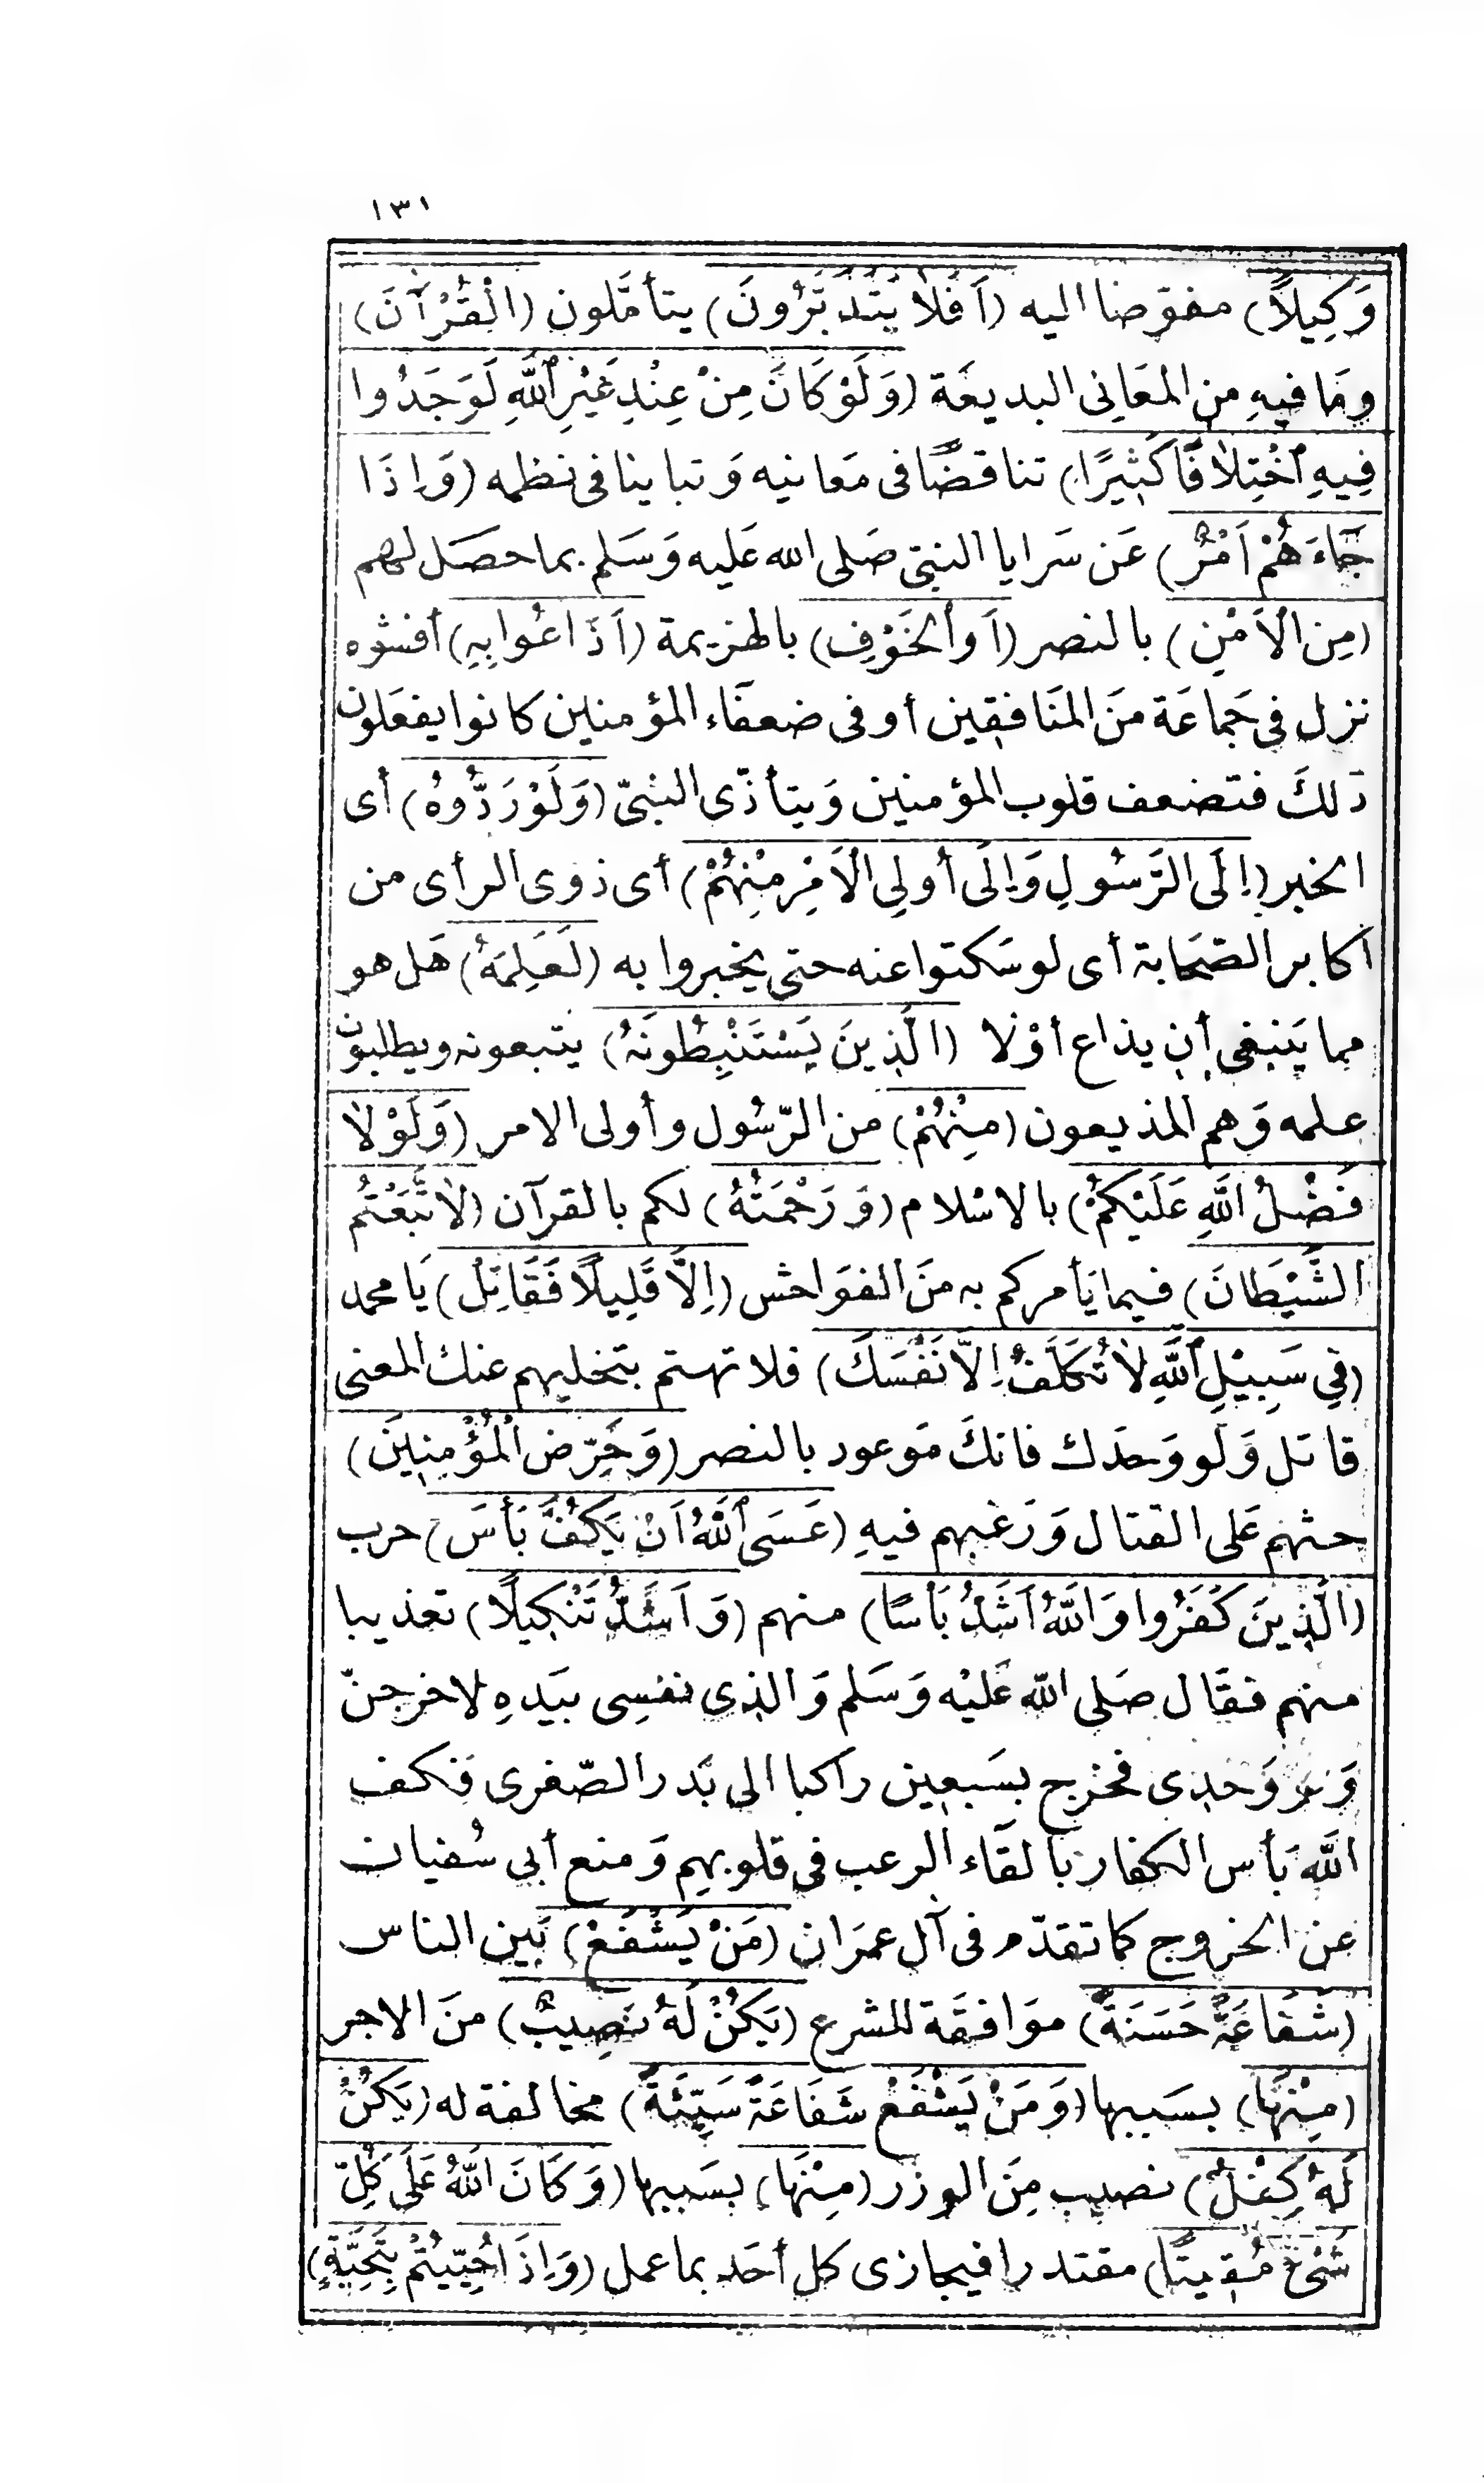 ١٣١
وَكِيلًا) مفوّضا اليه (اَفَلَا يَتَدَبَّرُونَ) يتأمّلون (الْقُرْآنَ)
وَمَا فيهِ من المعَانِى البديعَة (وَلَوْ كَانَ مِنْ عِنْدِ غَيْرِ ٱللَّهِ لَوَجَدُوا
فِيهِ ٱخْتِلَافًا كَثِيرًا) تناقضًا فى مَعانيه وَتباينا فى نظمه (وَاِذَا
جَاءَهُمْ اَمْرٌ) عَن سَرايا النبىّ صَلى الله عَليه وَسَلم بما حصَل لهم
(مِنَ الْاَمْنِ) بالنصر (اَوِ ٱلْخَوْفِ) بالهزيمة (اَذَاعُوا بِهِ) أفشوه
نزل فى جَماعَة منَ المنَافقين أو فى ضعفَاء المؤمنين كانوا يفعَلون
ذلكَ فتضعف قلوب المؤمنين وَيتأذّى النبىّ (وَلَوْ رَدُّوهُ) أى
الخبر (اِلَى الرَّسُولِ وَاِلَى أُولِى الْاَمْرِ مِنْهُمْ) أى ذوى الرأى من
أكابر الصّحَابة أى لو سَكتوا عنه حتى يخبروا به (لَعَلِمَهُ) هَل هو
مما يَنبغى أن يذاع أوْلا (الَّذِينَ يَسْتَنْبِطُونَهُ) يتبعونه ويطلبون
علمه وَهم المذيعون (مِنْهُمْ) من الرّسُول وأولى الامر (وَلَوْلَا
فَضْلُ اللَّهِ عَلَيْكُمْ) بالاسْلام (وَرَحْمَتُهُ) لكم بالقرآن (لَاتَّبَعْتُمُ
الشَّيْطَانَ) فيما يَأمركم به منَ الفوَاحش (اِلَّا قَلِيلًا فَقَاتِلْ) يَا محمد
(فِى سَبِيْلِ ٱللَّهِ لَا تُكَلَّفُ اِلَّا نَفْسَكَ) فلا تهتم بتخليهم عنك المعنى
قاتل وَلو وَحدَك فانكَ مَوعود بالنصر (وَحَرِّضِ الْمُؤْمِنِينَ)
حثهم عَلى القتال وَرَغبهم فيهِ (عَسَى ٱللَّهُ اَنْ يَكُفَّ بَأْسَ) حرب
(الَّذِينَ كَفَرُوا وَاللَّهُ اَشَدُّ بَأْسًا) منهم (وَاَشَدُّ تَنْكِيلًا) تعذيبا
منهم فقَال صَلى الله عَليْه وَسَلم وَالذى نفسِى بيَدهِ لاخرجنّ
وَلو وَحدِى فخرج بسَبعين راكبا الى بَدر الصّغرى فكف
اللَّه بَأس الكفار بالقَاء الرعب فى قلوبهِم وَمنع أبى سُفيان
عن الخروج كما تقدّم فى آل عمرَان (مَنْ يَشْفَعْ) بَين الناس
(شَفَاعَةً حَسَنَةً) موَافقَة للشرع (يَكُنْ لَهُ نَصِيبٌ) منَ الاجر
(مِنْهَا) بسَببها (وَمَنْ يَشْفَعْ شَفَاعَةً سَيِّئَةً) مخالفة له (يَكُنْ
لَهُ كِفْلٌ) نصيب مِنَ الوزر (مِنْهَا) بسَببها (وَكَانَ اللَّهُ عَلَى كُلِّ
شَىْءٍ مُقِيتًا) مقتدرا فيجازى كل أحَد بما عمل (وَاِذَا حُيِّيتُمْ بِتَحِيَّةٍ)